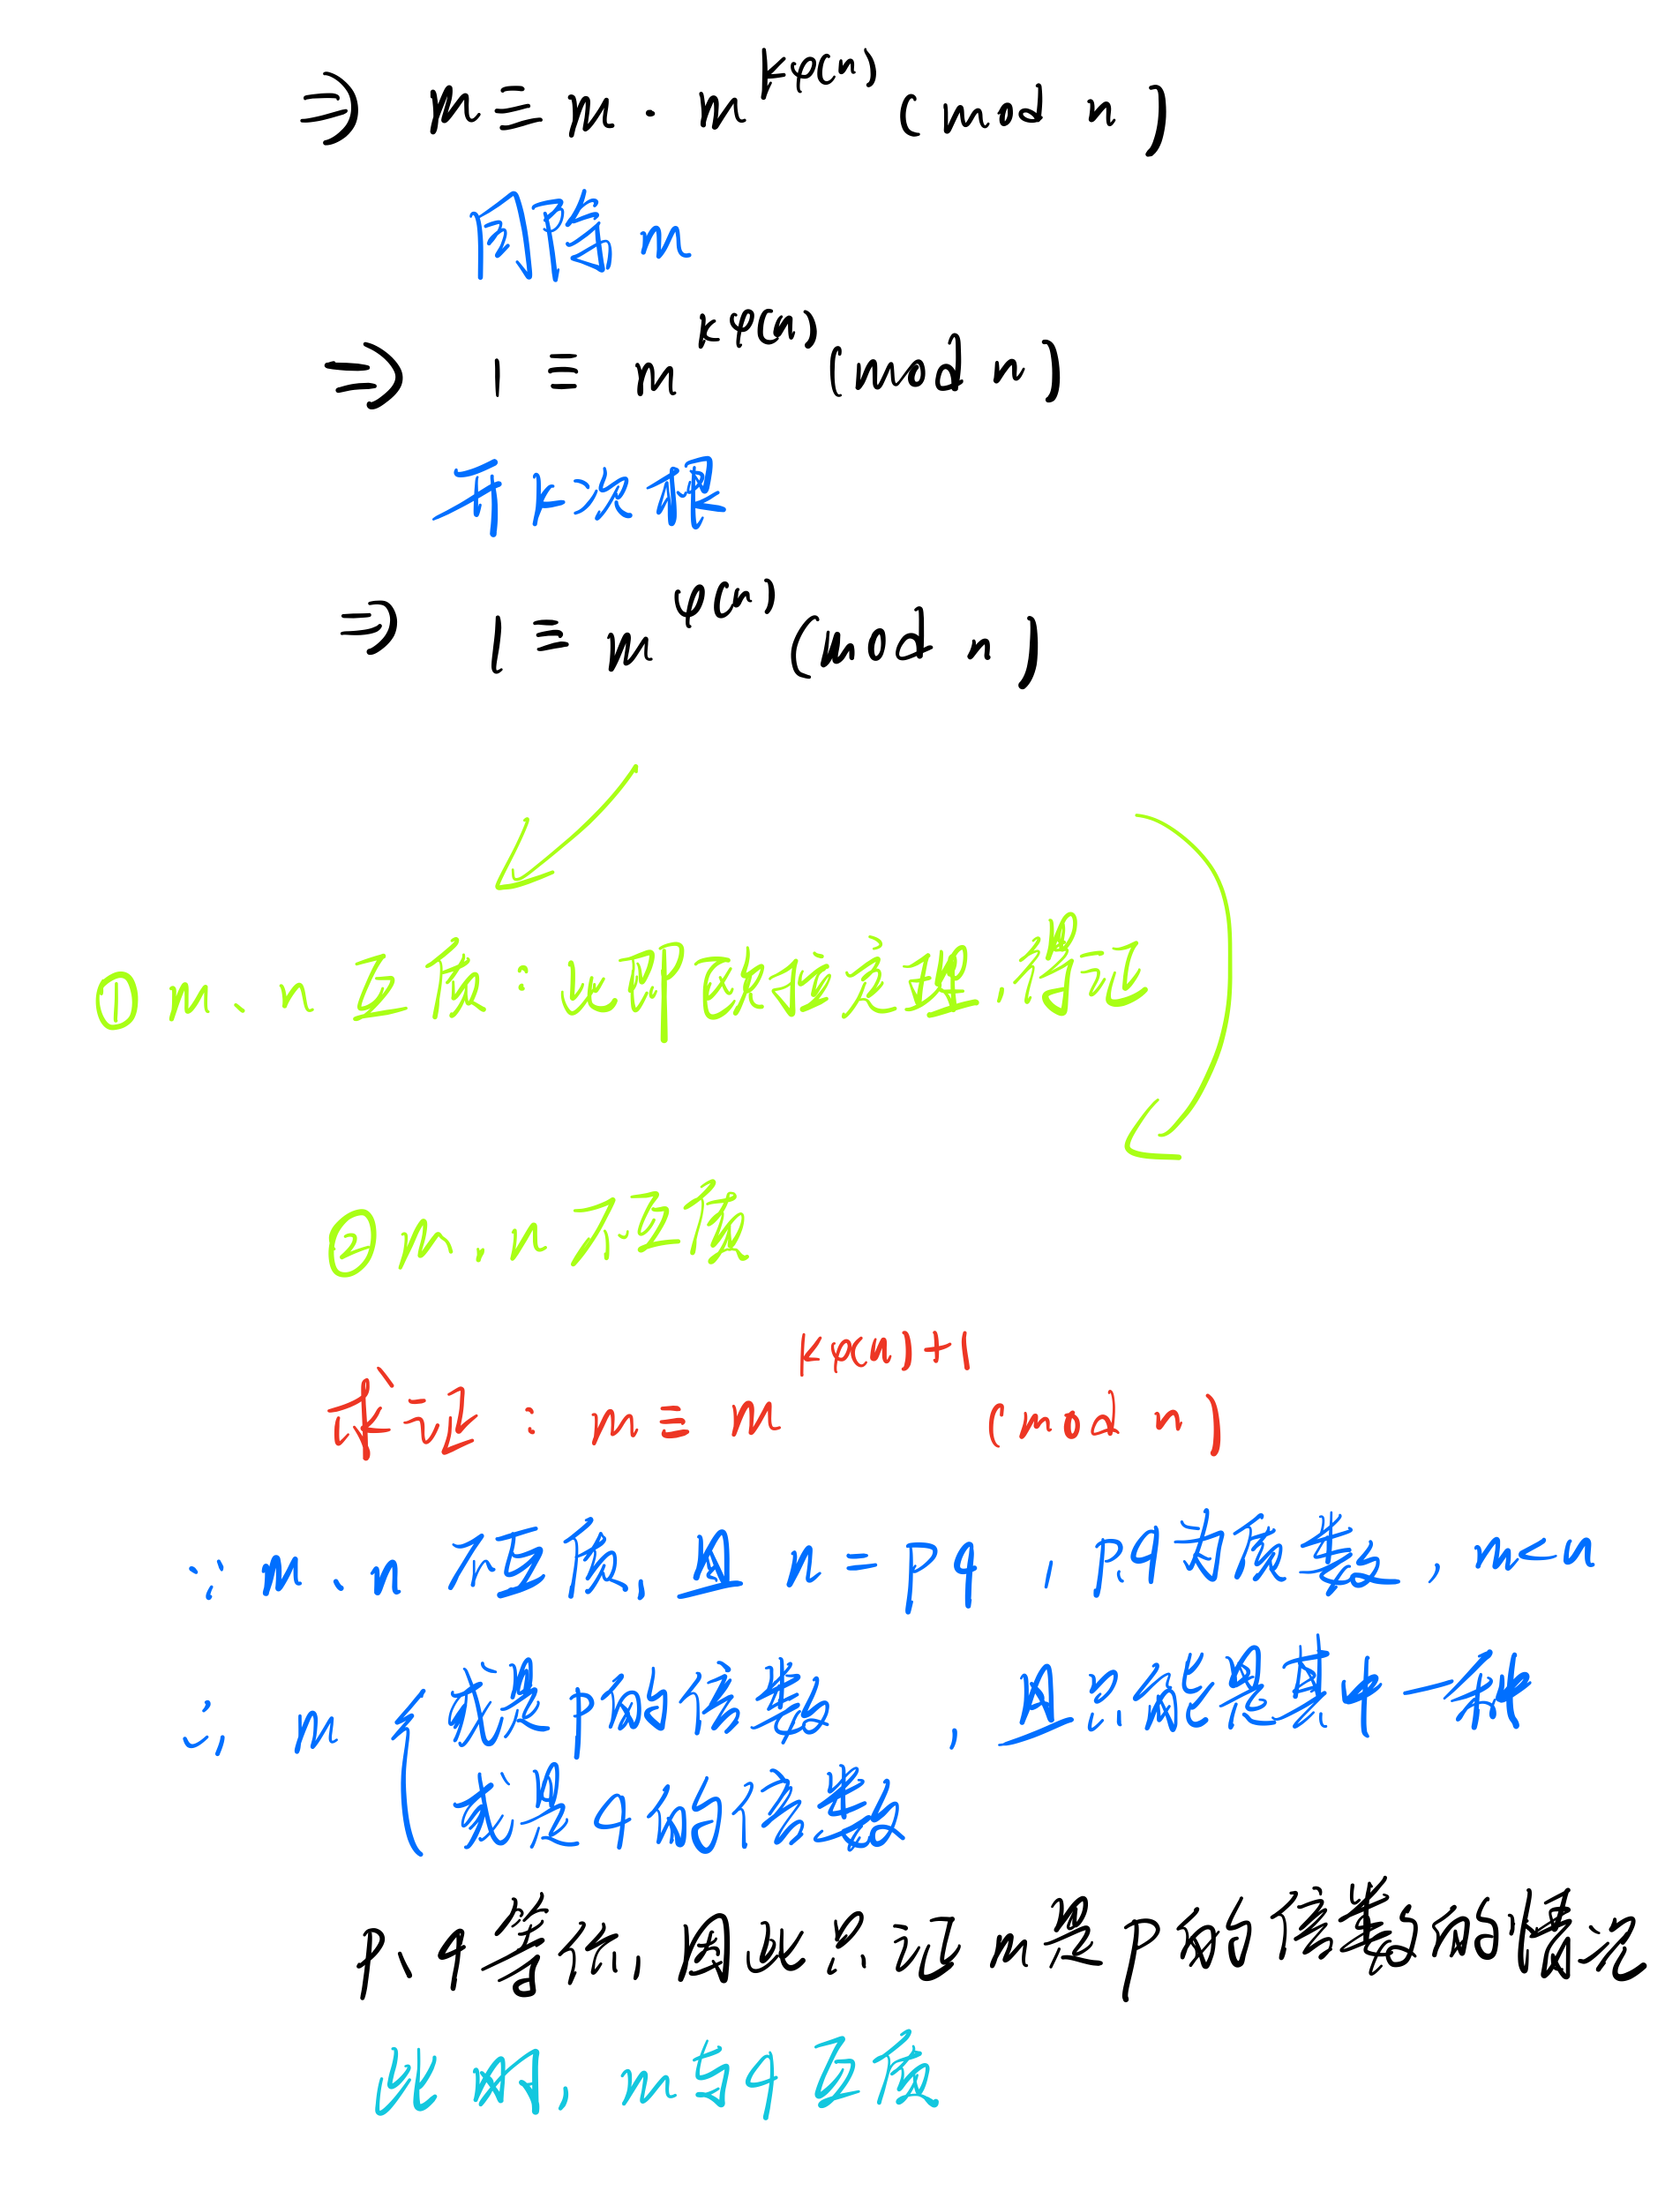 ⇒ m ≡ m · m^{kφ(n)} (mod n)
同除m
⇒ 1 ≡ m^{kφ(n)} (mod n)
开k次根
⇒ 1 ≡ m^{φ(n)} (mod n)
① m、n 互质：此即欧拉定理，得证
② m、n 不互质
求证：m ≡ m^{kφ(n)+1} (mod n)
∵ m、n 不互质，且 n = pq，p,q为质数，m<n
∴ m { 或是p的倍数，且只能是其中一种
或是q的倍数
p、q等价，因此只证m是p的倍数的情况
此时，m与q互质